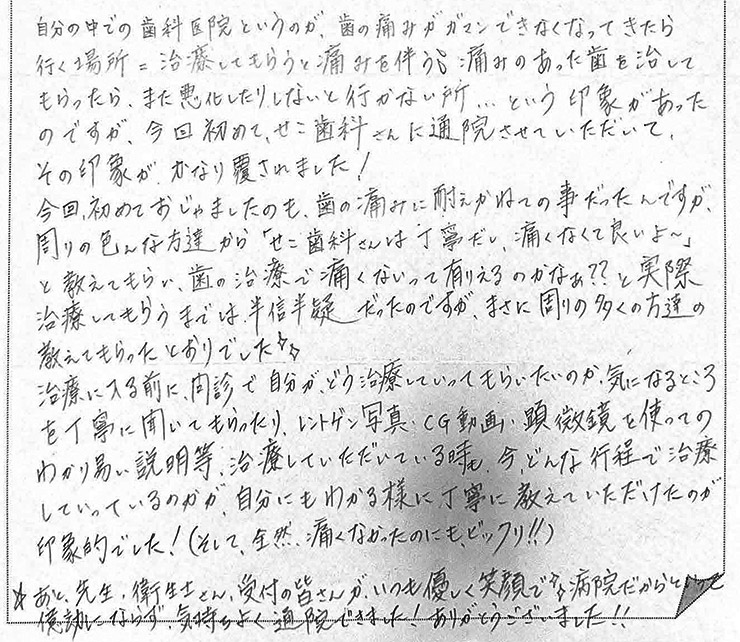 自分の中での歯科医院というのが、歯の痛みがガマンできなくなってきたら
行く場所=治療してもらうと痛みを伴うも 痛みのあった歯を治して
もらったら、また悪化したりしないと行かない所…という印象があった
のですが、今回初めて、せこ歯科さんに通院させていただいて、
その印象が、かなり覆されました!
今回、初めておじゃましたのも、歯の痛みに耐えかねての事だったんですが、
周りの色んな方達から「せこ歯科さんは丁寧だし、痛くなくて良いよ~」
と教えてもらい、歯の治療で痛くないって有りえるのかなぁ??と実際
治療してもらうまでは、半信半疑だったのですが、まさに周りの多くの方達の
教えてもらったとおりでした☆☆
治療に入る前に、問診で自分が、どう治療していってもらいたいのか、気になるところ
を丁寧に聞いてもらったり、レントゲン写真・CG動画・顕微鏡を使っての
わかり易い説明等、治療していただいている時も、今、どんな行程で治療
していっているのかが、自分にもわかる様に丁寧に教えていただけたのが
印象的でした!(そして、全然、痛くなかったのにも、ビックリ!!)
☆あと、先生・衛生士さん、受付の皆さんが、いつも優しく笑顔で 病院だからといって
億劫にならず、気持ちよく通院できました!ありがとうございました!!